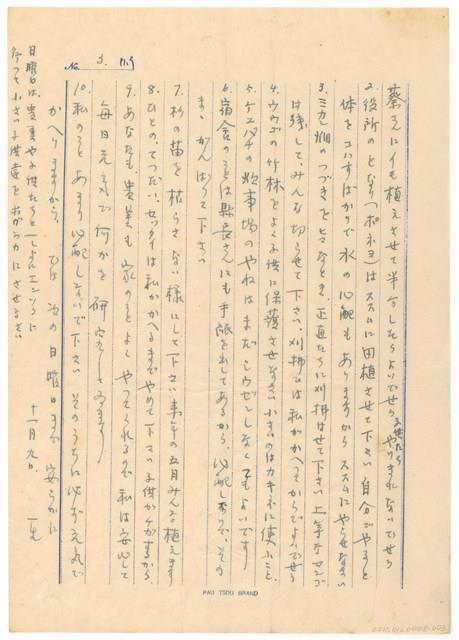 No. 3. 11.9
蔡さんにイモ植えさせて半分したらよいでせう
お母さたら やりきれないでせう
2. 役所のとなり(ポネヨ)はススムに田植させて下さい 自分でやると
体をコハすばかりで水の心配もありますからススムにやらせなさい
3. ミカン畑のつづきをヒマなとき、正直たちに刈拂はせて下さい 上等な
は残して、みんな切らせて下さい。刈拂は私がかへってからでよいでせう
4. ウウヅの竹林をよく子供に保護させなさい 小さいのはカキネに使ふこと
5. ケユパナの炊事場のやねはまだシウゼンしなくてもよいです
6. 宿舎のことは縣長さんにも手紙を出してあるから、心配しないで、その
まゝがんばって下さい
7. 杉の苗を枯らさない様にして下さい 来年の五月みんな植えます
8. ひとの、てつだい、セッタイは私がかへるまでやめて下さい 子供がケガするから、
9. あなたも、貴美も 家のことよくやってくれるので 私は安心して
毎日元気で何かを研究してゐます
10. 私のことあまり心配しないで下さい そのうちに必ず元気で
かへりますから、では 次の日曜日まで 安らかに
十一月九日、 一光
日曜日は、貴美や子供たちと一しょにエンソクに
行って 小さい子供達をよろこばさせなさい
PAU TSOU BRAND
20150120008-003